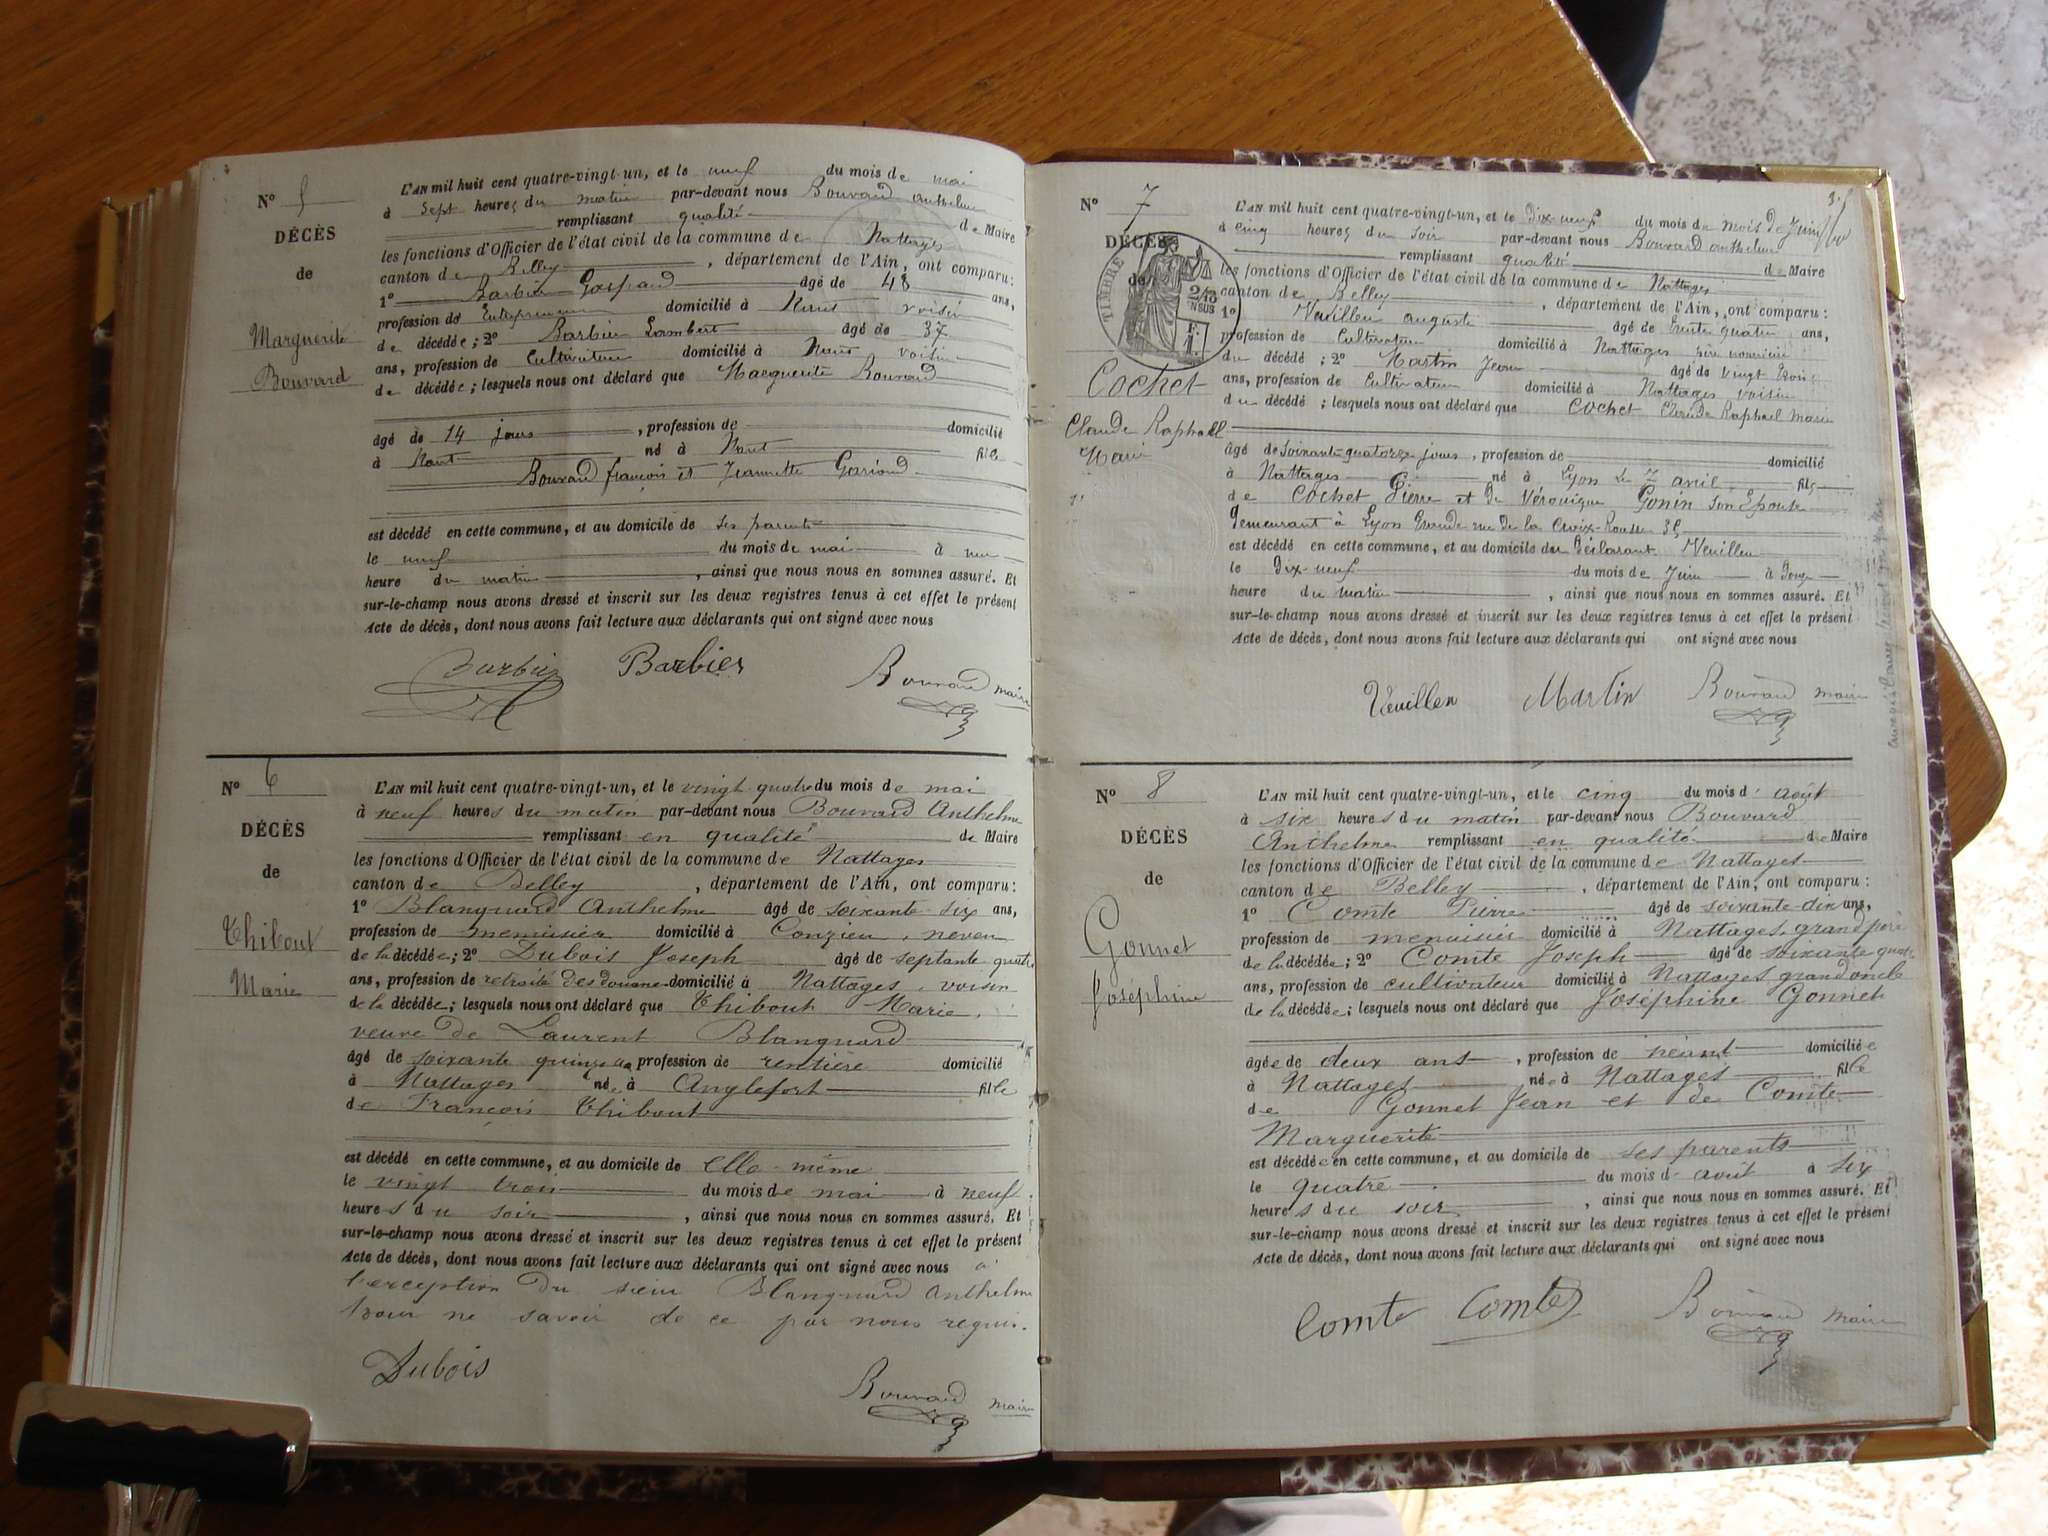 N° 5
DÉCÈS
de
Marguerite
Bouvard
L'AN mil huit cent quatre-vingt-un, et le neuf du mois de mai
à sept heures du matin par-devant nous Bouvard anthelme
remplissant qualité de Maire
les fonctions d'Officier de l'état civil de la commune de Nattages
canton de Belley, département de l'Ain, ont comparu:
1° Barbier Gaspard âgé de 48 ans,
profession de Entrepreneur domicilié à Nant voisin
de décédée; 2° Barbier Lambert âgé de 37
ans, profession de Cultivateur domicilié à Nant voisin
de décédée; lesquels nous ont déclaré que Marguerite Bouvard
âgé de 14 jours, profession de domicilié
à Nant né à Nant fille
Bouvard françois et Jeannette
est décédé en cette commune, et au domicile de ses parents
le neuf du mois de mai à une
heure du matin, ainsi que nous nous en sommes assuré. Et
sur-le-champ nous avons dressé et inscrit sur les deux registres tenus à cet effet le présent
Acte de décès, dont nous avons fait lecture aux déclarants qui ont signé avec nous
Barbier Barbier Bouvard maire
N° 6
DÉCÈS
de
Thibout
Marie
L'AN mil huit cent quatre-vingt-un, et le vingt quatre du mois de mai
à neuf heures du matin par-devant nous Bouvard Anthelme
remplissant en qualité de Maire
les fonctions d'Officier de l'état civil de la commune de Nattages
canton de Belley, département de l'Ain, ont comparu:
1° Blanquard Anthelme âgé de soixante-six ans,
profession de menuisier domicilié à Conzieu, neveu
de la décédée; 2° Dubois Joseph âgé de septante quatre
ans, profession de retraité des douane domicilié à Nattages, voisin
de la décédée; lesquels nous ont déclaré que Thibout Marie,
veuve de Laurent Blanquard
âgé de soixante quinze ans profession de rentière domicilié
à Nattages née à Anglefort fille
de François Thibout
est décédé en cette commune, et au domicile de elle-même
le vingt trois du mois de mai à neuf
heures du soir, ainsi que nous nous en sommes assuré. Et
sur-le-champ nous avons dressé et inscrit sur les deux registres tenus à cet effet le présent
Acte de décès, dont nous avons fait lecture aux déclarants qui ont signé avec nous à
l'exception du sieur Blanquard Anthelme
pour ne savoir de ce par nous requis.
Dubois Bouvard maire
N° 7
DÉCÈS
de
TIMBRE
Cochet
Claude Raphaël
Marie
L'AN mil huit cent quatre-vingt-un, et le Dix-neuf du mois de mois de Juin
à cinq heures du soir par-devant nous Bouvard anthelme
remplissant qualité de Maire
les fonctions d'Officier de l'état civil de la commune de Nattages
canton de Belley, département de l'Ain, ont comparu:
1° Veuillen auguste âgé de trente quatre ans,
profession de Cultivateur domicilié à Nattages père nourricier
du décédé; 2° Martin Jean âgé de vingt trois
ans, profession de Cultivateur domicilié à Nattages voisin
du décédé; lesquels nous ont déclaré que Cochet Claude Raphael Marie
âgé de soixante-quatorze jours, profession de domicilié
à Nattages né à Lyon le 7 avril fils
de Cochet Pierre et de Véronique Gonin son Epouse
demeurant à Lyon Grande rue de la Croix-Rousse 35
est décédé en cette commune, et au domicile du Déclarant Veuillen
le Dix-neuf du mois de Juin à Douze
heure du matin, ainsi que nous nous en sommes assuré. Et
sur-le-champ nous avons dressé et inscrit sur les deux registres tenus à cet effet le présent
Acte de décès, dont nous avons fait lecture aux déclarants qui ont signé avec nous
Veuillen Martin Bouvard maire
N° 8
DÉCÈS
de
Gonnet
Joséphine
L'AN mil huit cent quatre-vingt-un, et le cinq du mois d'août
à six heures du matin par-devant nous Bouvard
Anthelme remplissant en qualité de Maire
les fonctions d'Officier de l'état civil de la commune de Nattages
canton de Belley, département de l'Ain, ont comparu:
1° Comte Pierre âgé de soixante-dix ans,
profession de menuisier domicilié à Nattages, grand père
de la décédée; 2° Comte Joseph âgé de soixante quatre
ans, profession de cultivateur domicilié à Nattages grand oncle
de la décédée; lesquels nous ont déclaré que Joséphine Gonnet
âgée de deux ans, profession de néant domiciliée
à Nattages née à Nattages fille
de Gonnet Jean et de Comte
Marguerite
est décédée en cette commune, et au domicile de ses parents
le quatre du mois d'août à six
heures du soir, ainsi que nous nous en sommes assuré. Et
sur-le-champ nous avons dressé et inscrit sur les deux registres tenus à cet effet le présent
Acte de décès, dont nous avons fait lecture aux déclarants qui ont signé avec nous
Comte Comte Bouvard maire